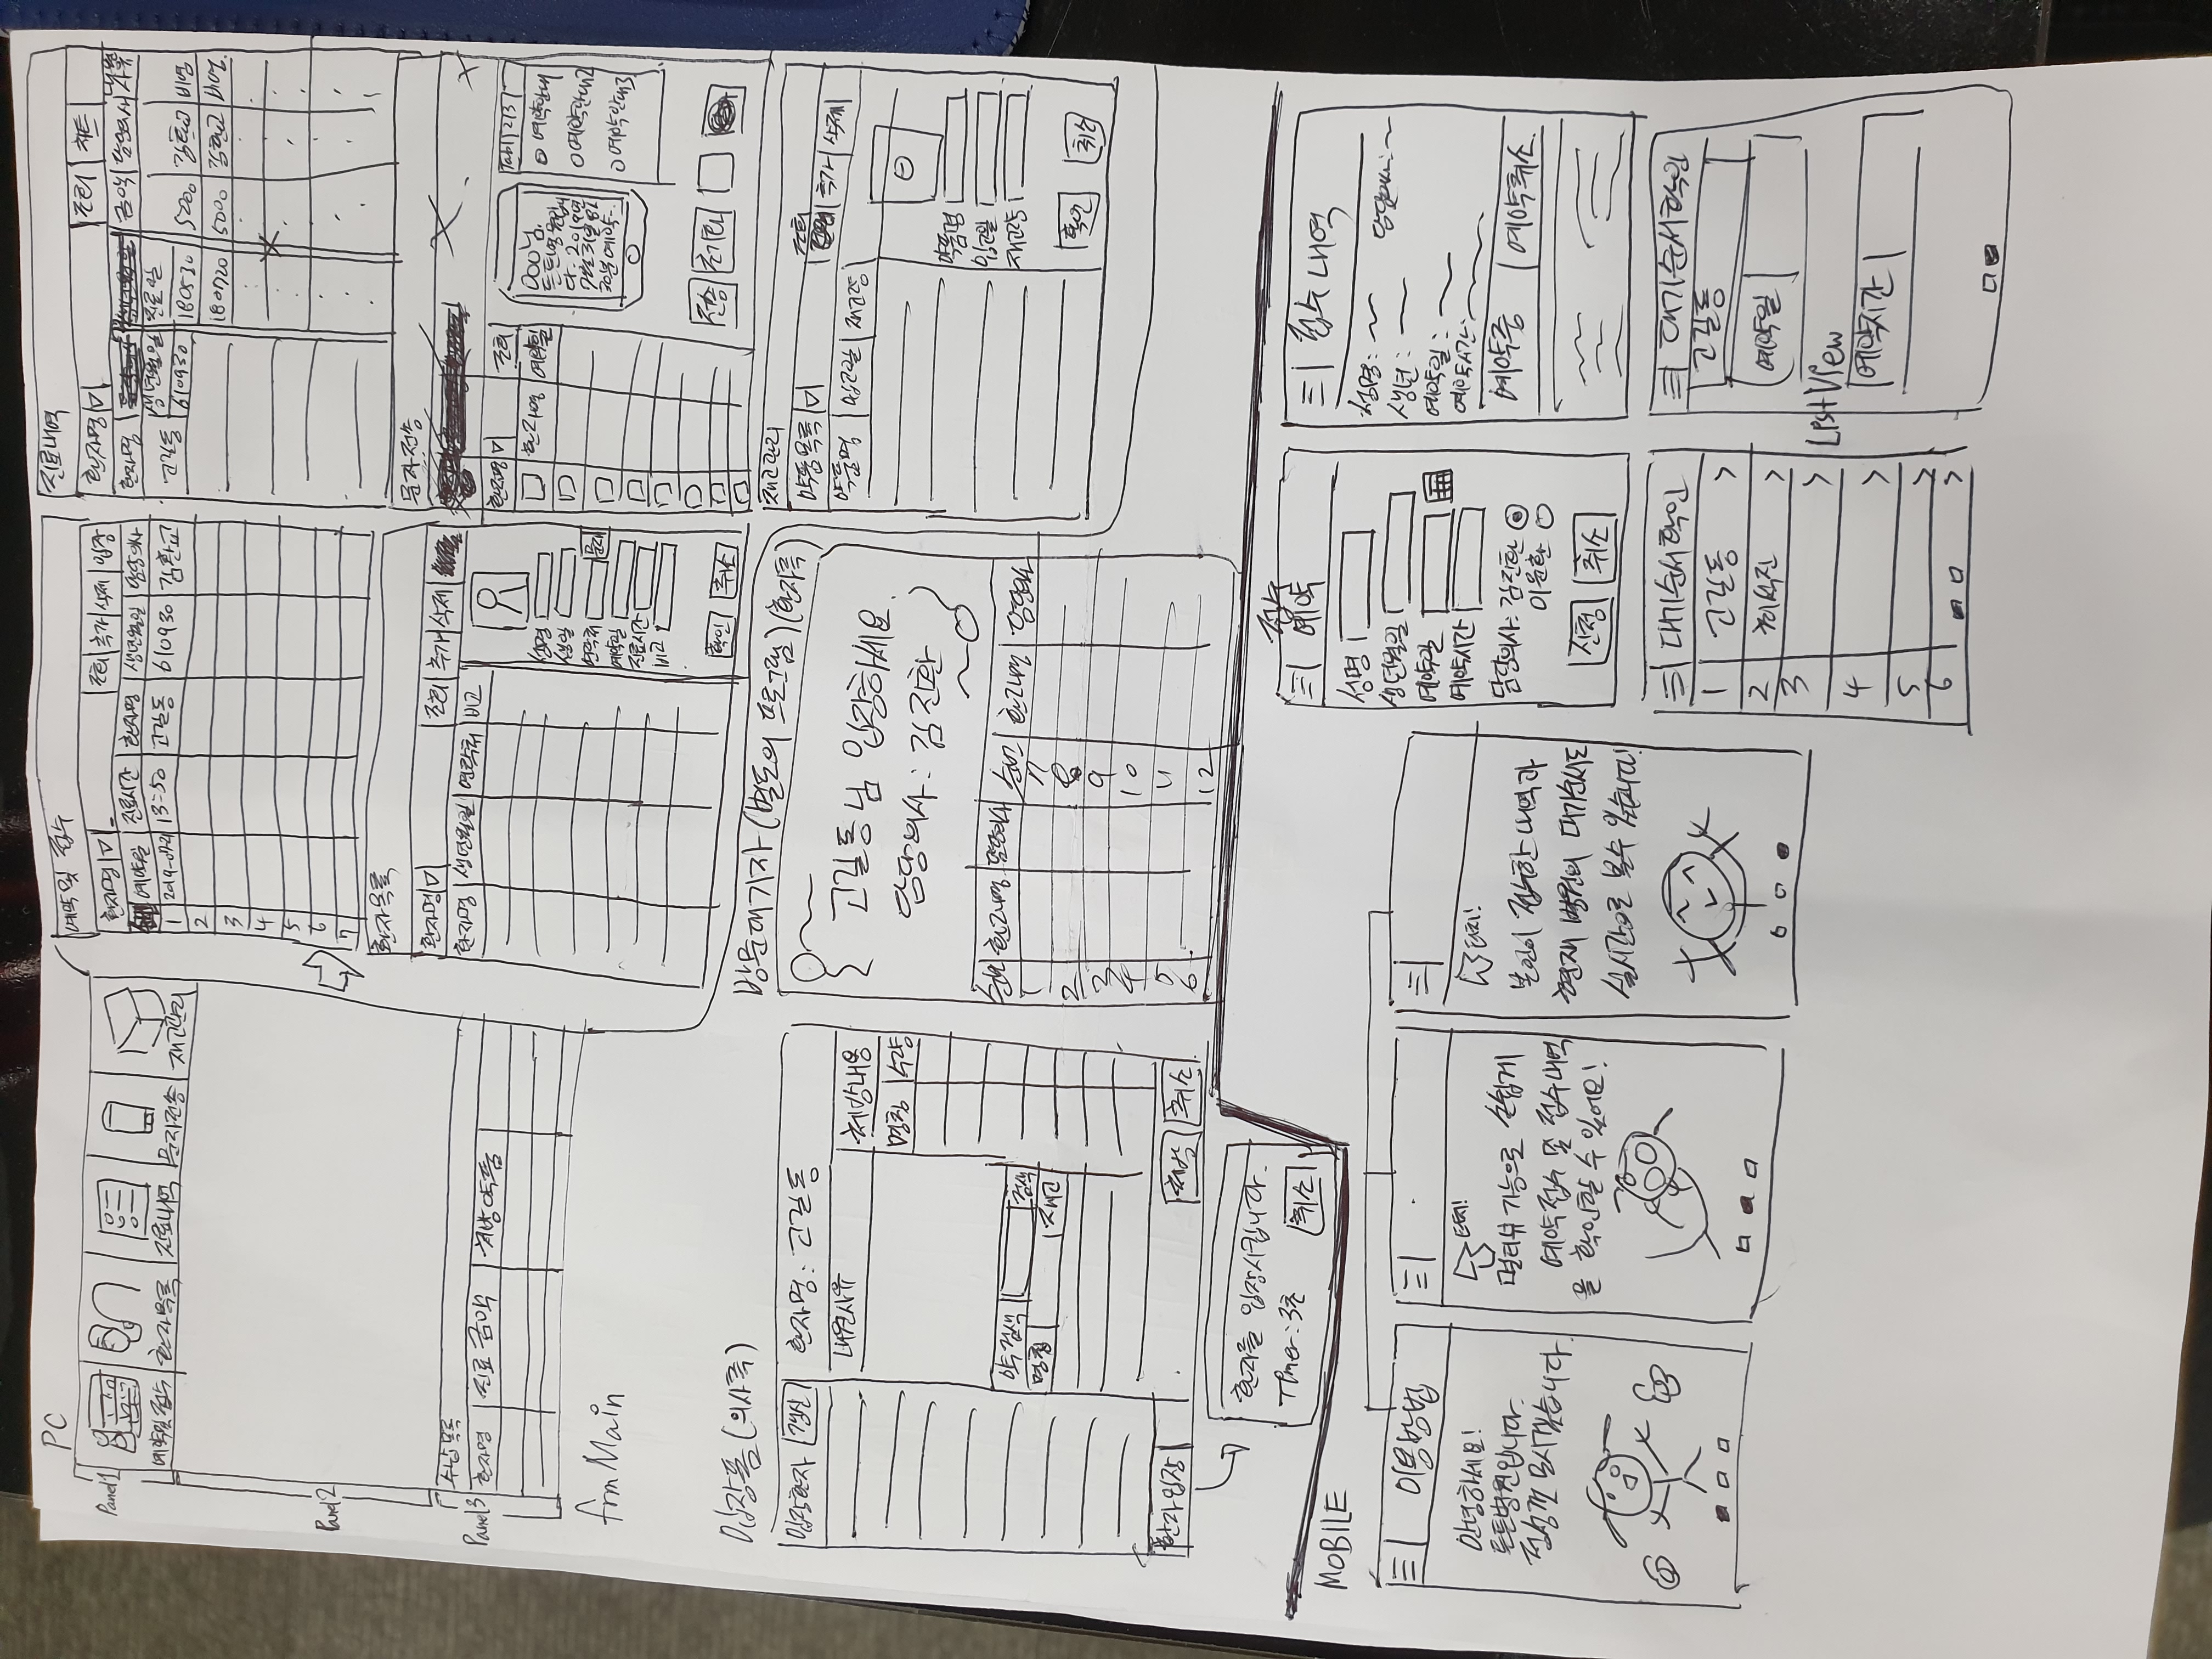 PC
Panel 1
예약 및 접수
환자목록
진료내역
문자전송
재고관리
Panel 2
Panel 3
수납 목록
환자명 진료 금액 처방약품
frm Main
예약 및 접수
환자명 조회 추가 삭제 입장
예약일 진료시간 환자명 생년월일 담당의사
1 13:50 고길동 610930 김환교
2
3
4
5
6
7
진료내역
환자명 조회 차트
환자명 생년월일 진료일 금액 담당의사 내원사유
고길동 610930 180530 5000 김환교 비염
180720 5000 김환교 비염.
환자목록
환자명 조회 추가 삭제
환자명 생년월일 연락처 비고
성명
생일
연락처 문자
예약일
진료시간
비고
확인 취소
문자전송
환자명 조회
환자명 예약일
OOO님.
든든병원입니
다. 2019년
7월 31일 8시
30분 예약...
Tab1 2 3
예약안내
예약안내2
예약안내3
전송 초기화
입장폼 (의사쪽)
입장환자 갱신
환자명: 고길동
내원사유
처방내용
명칭 수량
약 검색 검색
명칭 재고
환자입장
처방 취소
환자를 입장시킵니다.
Timer: 3초
취소
방문대기자 (별도의 프로그램) (환자쪽)
고길동님 입장하세요.
담당의사: 김진환
순번 환자명 담당의사 순번 환자명 담당의사
1 7
2 8
3 9
4 10
5 11
6 12
재고관리
약품목록 조회 추가 삭제
약품명 입고일 재고량
약품명
입고일
재고량
확인 취소
MOBILE
이용방법
안녕하세요!
든든병원입니다.
정성껏 모시겠습니다.
터치!
멀티뷰 기능으로 손쉽게
예약접수 및 접수내역
을 확인할 수 있어요!
터치!
본인이 접수한 내역과
현재 병원의 대기순서도
실시간으로 볼수 있습니다!
접수
예약
성명
생년월일
예약일
예약시간
담당의사: 김진환
이윤환
신청 취소
접수 내역
성명:
담당의사:
생년:
예약일:
예약시간:
예약중 예약취소.
대기순서확인
1 고길동 >
2 허석진 >
3 >
4 >
5 >
6 >
List View
대기순서확인
고길동
예약일
예약시간